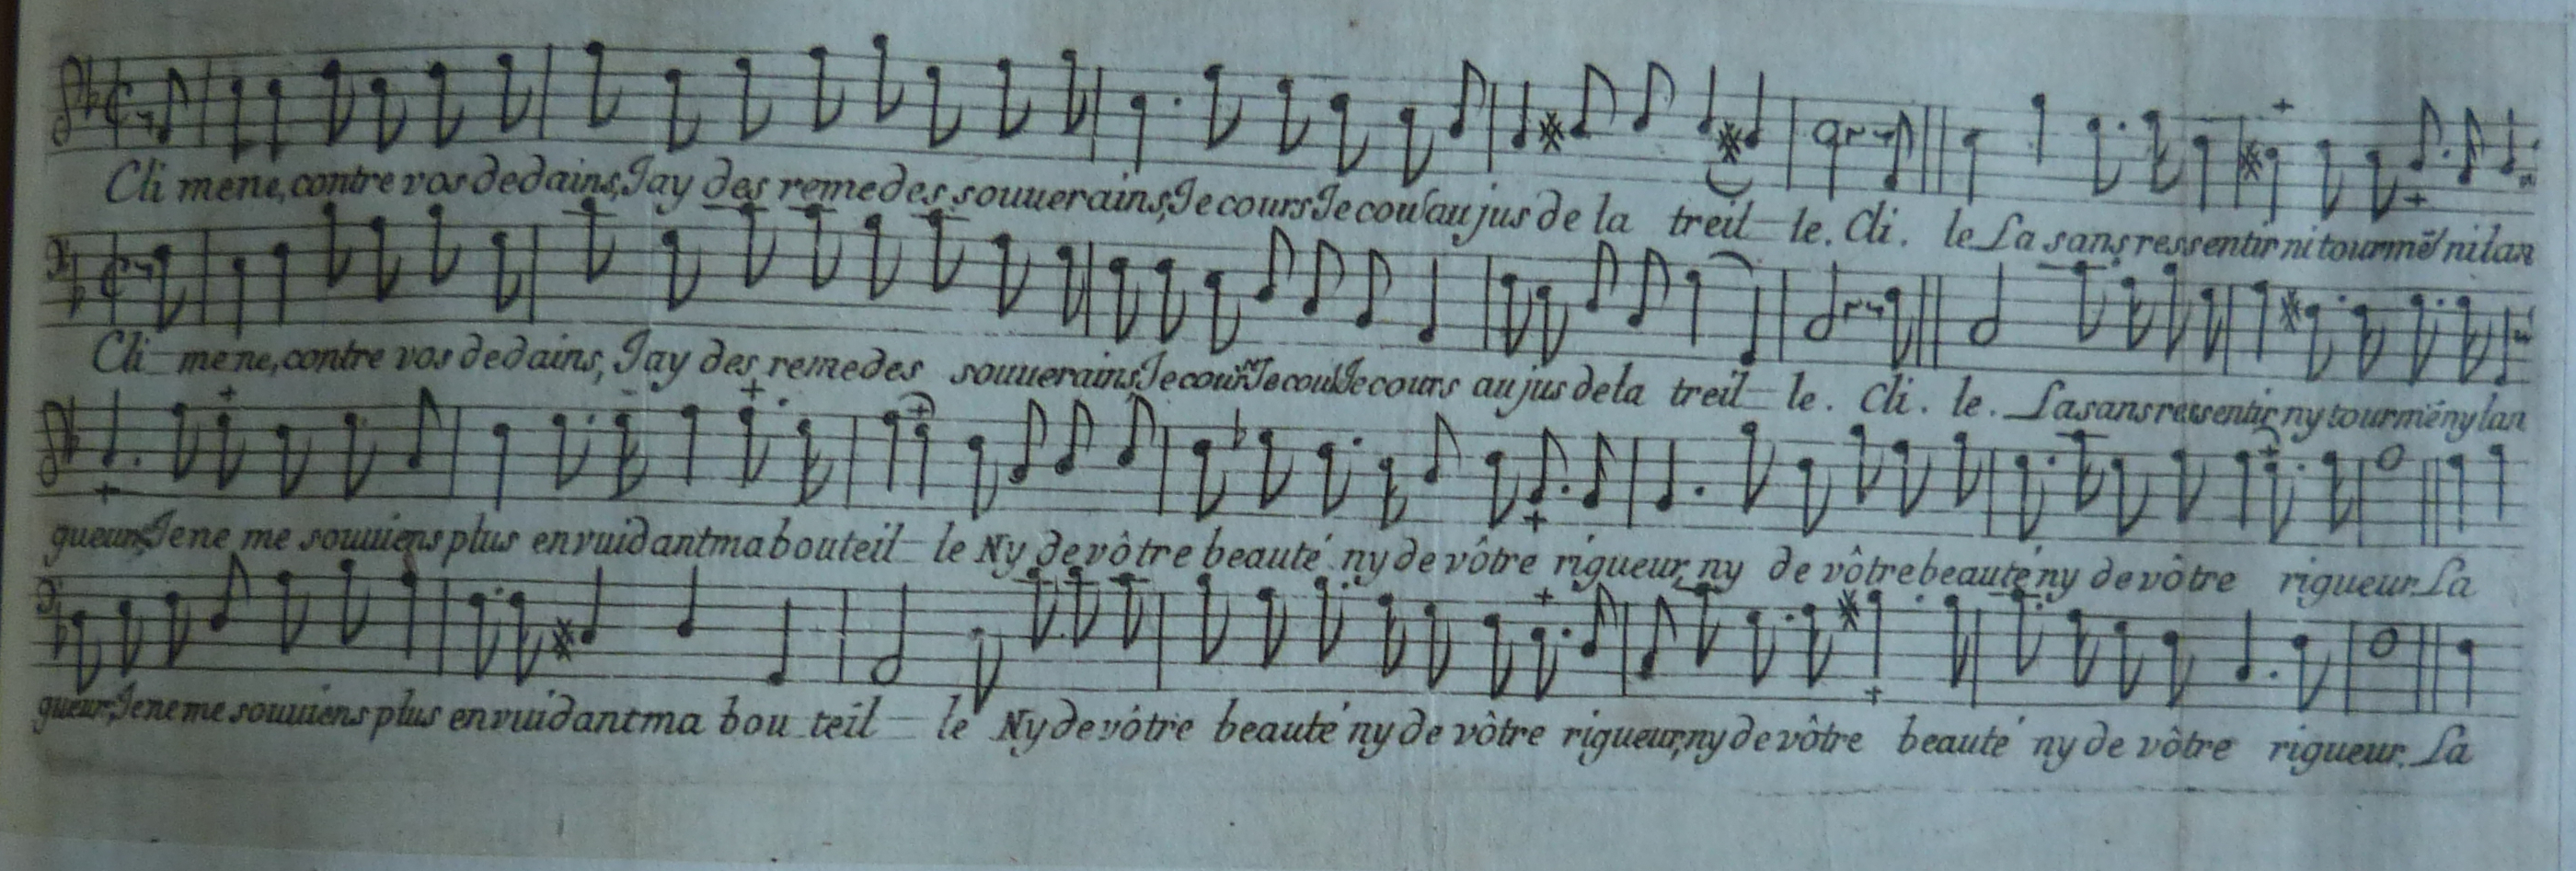 Cli mene, contre vos dedains, Jay des remedes souuerains, Je cours Je cour au jus de la treil le. Cli. le La sans ressentir ni tourmēt ni lan
Cli mene, contre vos dedains, Jay des remedes souuerains, Je cour Je cour Je cours au jus de la treil le. Cli. le. La sans ressentir ny tourmēt ny lan
gueur, Je ne me souuiens plus en vuidant ma bouteil le Ny de vôtre beauté ny de vôtre rigueur, ny de vôtre beauté ny de vôtre rigueur. La
gueur, Je ne me souuiens plus en vuidant ma bou teil le Ny de vôtre beauté ny de vôtre rigueur, ny de vôtre beauté ny de vôtre rigueur. La